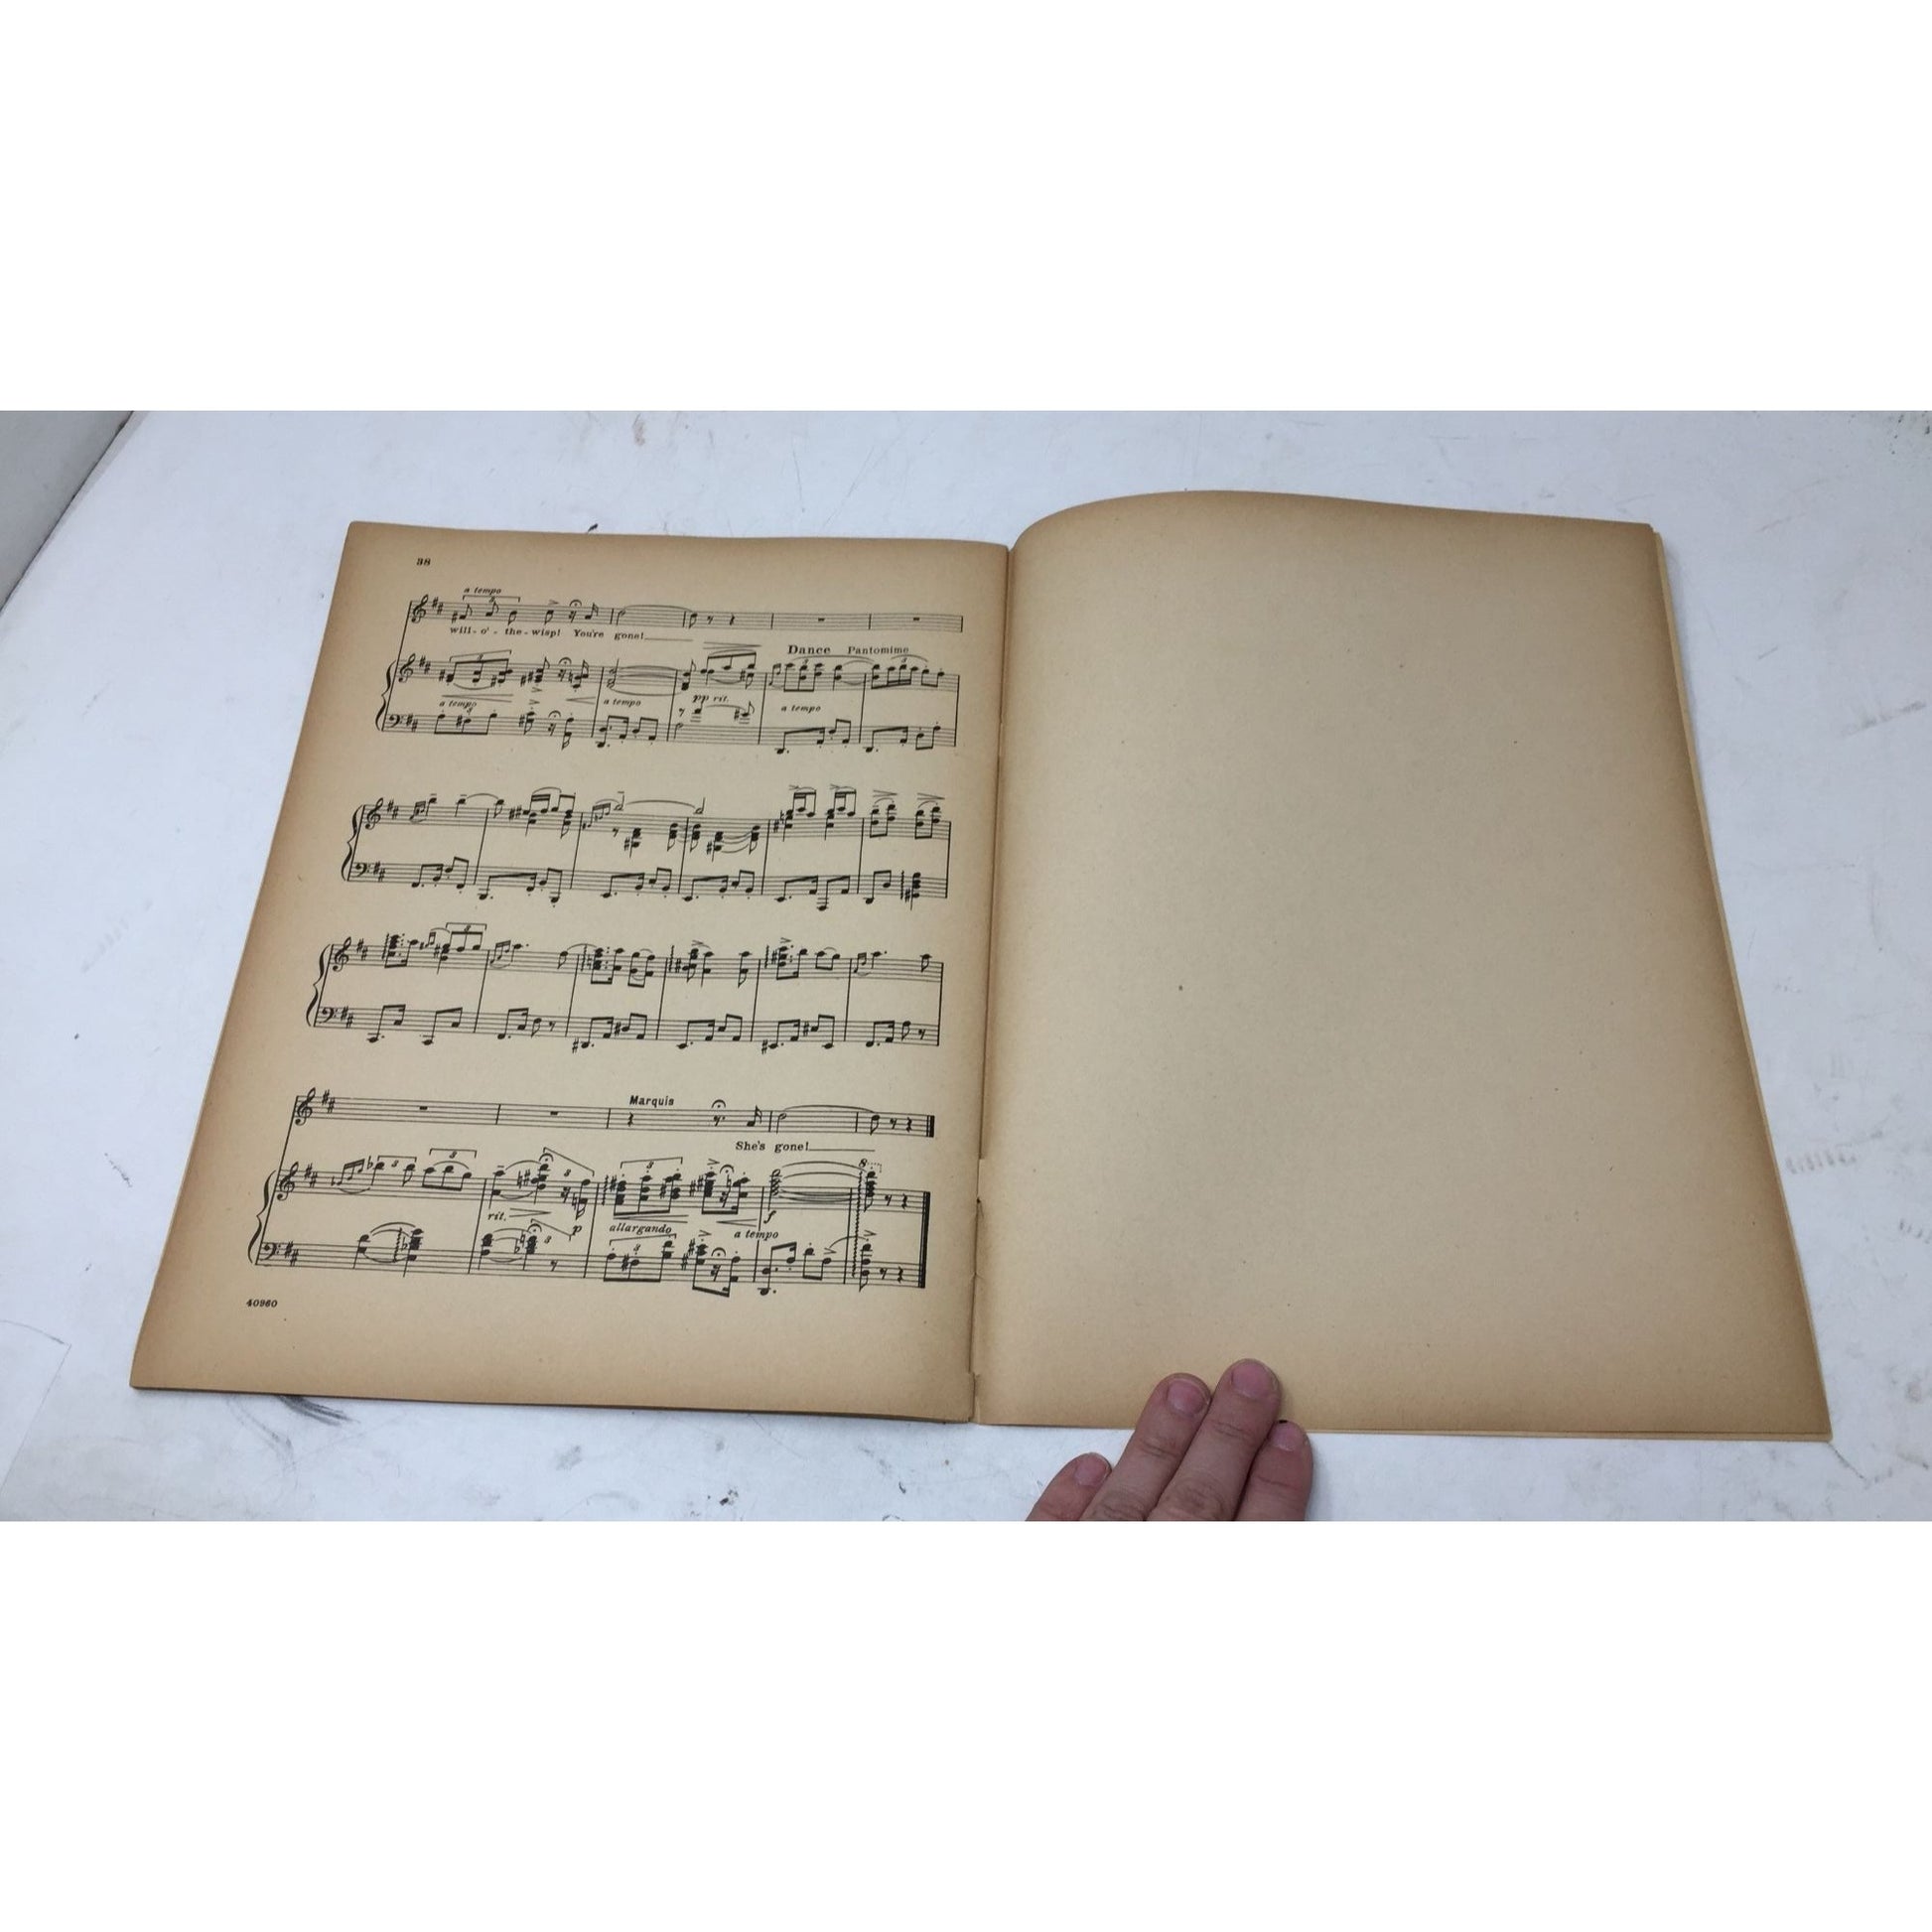 38
a tempo
will-o'-the-wisp! You're gone!
Dance Pantomime
a tempo
a tempo
pp rit.
a tempo
Marquis
She's gone!
rit.
p
allargando
f
a tempo
40960